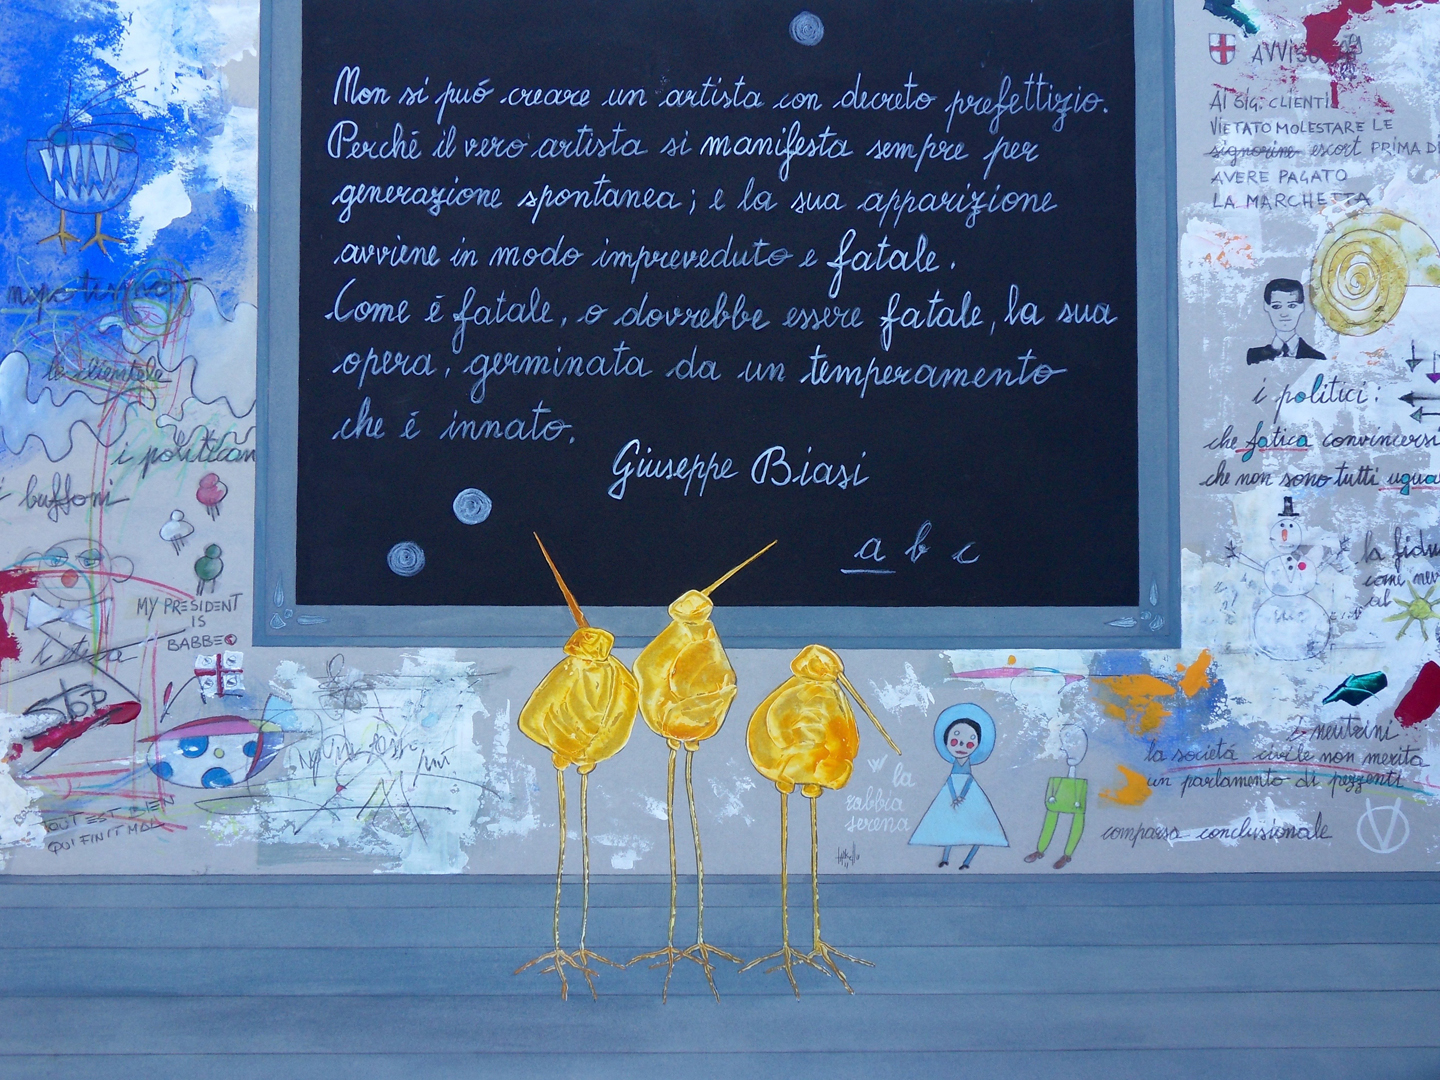 Non si puó creare un artista con decreto prefettizio.
Perché il vero artista si manifesta sempre per
generazione spontanea; e la sua apparizione
avviene in modo impreveduto e fatale.
Come é fatale, o dovrebbe essere fatale, la sua
opera, germinata da un temperamento
che é innato.
Giuseppe Biasi
a b c
le clientele
i politican
i buffoni
MY PRESIDENT
IS
BABBEO
STOP
TOUT EST BIEN
QUI FINIT MAL
AVVISO
AI SIG. CLIENTI
VIETATO MOLESTARE LE
signorine escort PRIMA DI
AVERE PAGATO
LA MARCHETTA
i politici:
che fatica convincersi
che non sono tutti ugua
la fidu
come nev
al
i neutrini
la societá civile non merita
un parlamento di pezzenti
comparsa conclusionale
V
la
rabbia
serena